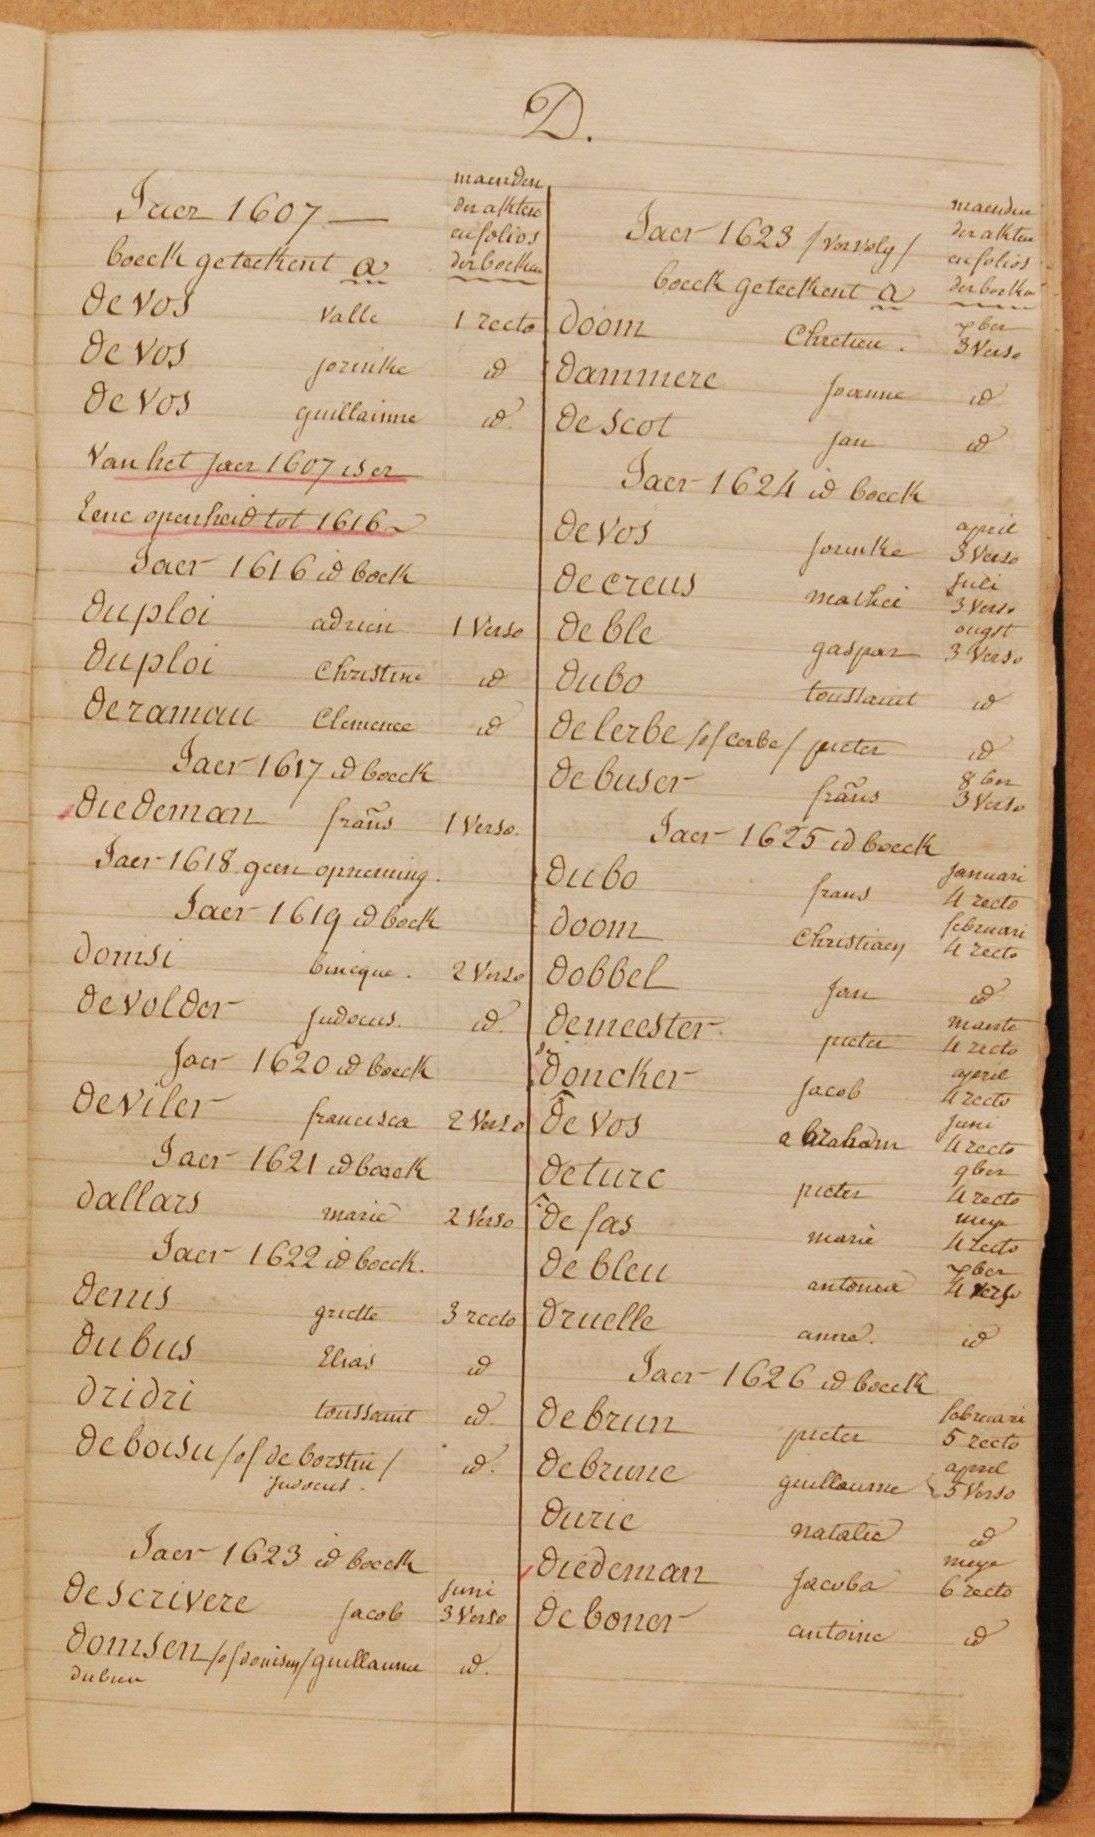 D.
maenden
Jaer 1607
der akten
en folios
boeck geteekent a
der boeken
de vos valle 1 recto
de vos jorinke id
de vos guillainne id.
Van het jaer 1607 is er
Eene openheid tot 1616
Jaer 1616 id boek
duploi adrien 1 Verso
duploi Christine id
deramau Clemence id
Jaer 1617 id boeck
diedeman frañs 1 Verso.
Jaer 1618 geen opneming.
Jaer 1619 id boek
domsi 2 Verso
de volder judocus. id.
Jaer 1620 id boeck
de viler francisca 2 Verso
Jaer 1621 id boeck
dallars marie 2 Verso
Jaer 1622 id boeck.
denis griette 3 recto
dubus Elias id
dridri toussaint id.
deboisu /of de borstin/ id.
judocus.
Jaer 1623 id boeck
juni
descrivere jacob 3 Verso
domsen /of doinsen/ guillaume id.
maenden
Jaer 1623 /vervolg/
der akten
en folios
boeck geteekent a
der boeken
7ber
doom Chretien. 3 Verso
dammere joanne id
de scot jan id
Jaer 1624 id boeck
april
de vos jorinke 3 Verso
juli
decreus mathei 3 Verso
ougst
de ble gaspar 3 Verso
dubo toussaint id
de lerbe /of cerbe/ pieter id
8ber
de buser frañs 3 Verso
Jaer 1625 id boeck
januari
dubo frans 4 recto
februari
doom Christiaen 4 recto
dobbel jan id
maerte
demeester pieter 4 recto
april
de doncker jacob 4 recto
juni
de vos abraham 4 recto
9ber
deturc pieter 4 recto
meye
de fas marie 4 recto
7ber
de bleu antonia 4 verso
druelle anne. id
Jaer 1626 id boeck
februari
debrun pieter 5 recto
april
debrune guillaume 5 Verso
durie natalie id
meye
diedeman jacoba 6 recto
de boner antoine id